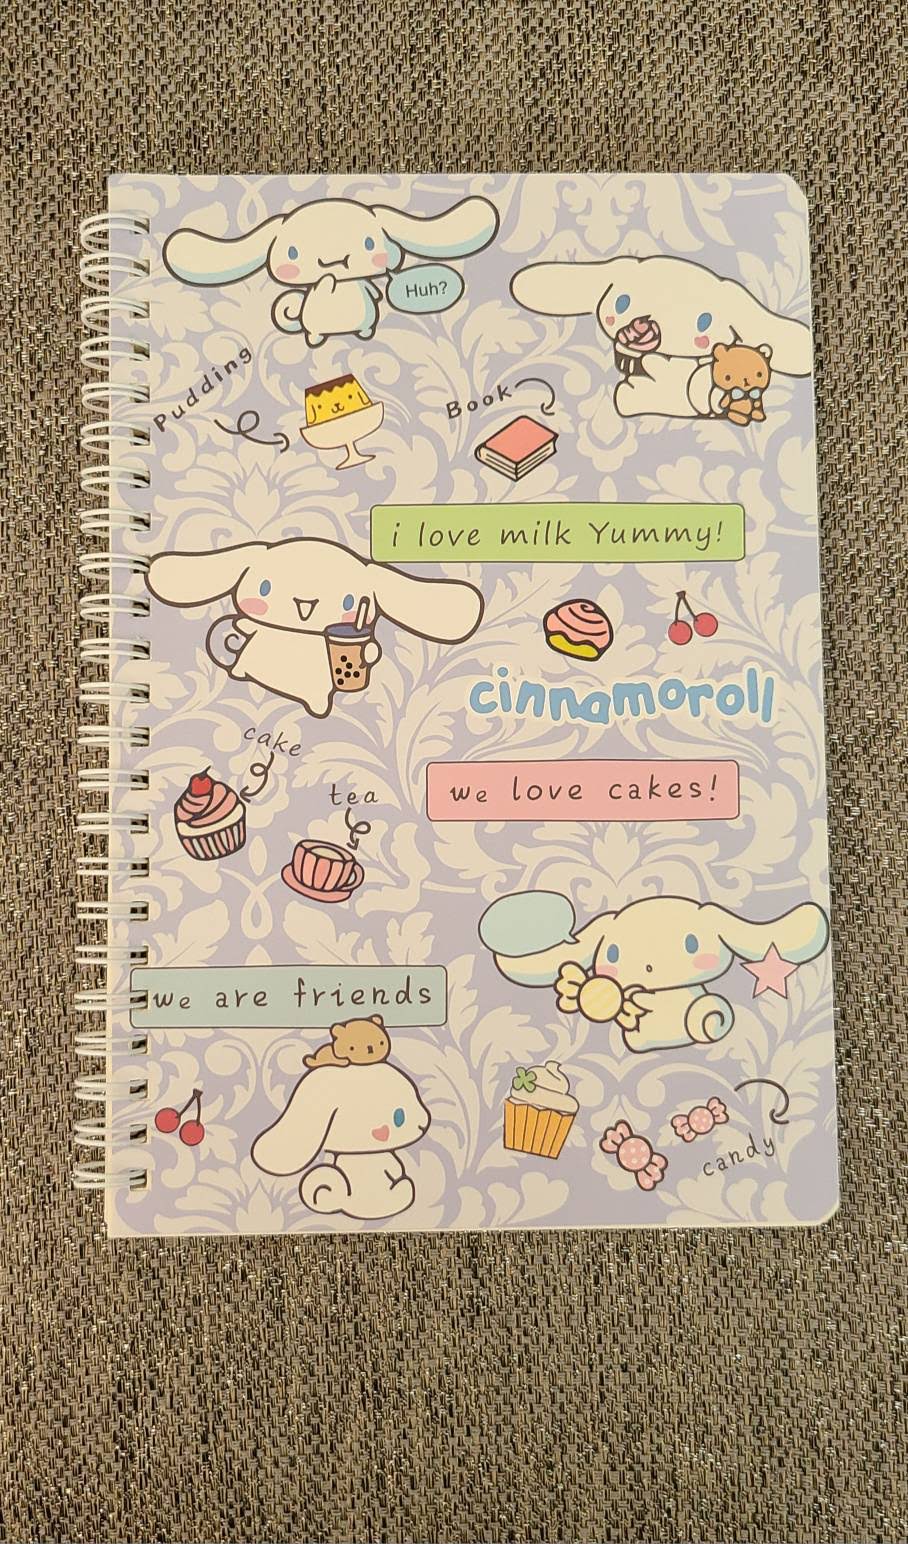 Huh?
Pudding
Book
i love milk Yummy!
cinnamoroll
cake
we love cakes!
tea
we are friends
candy